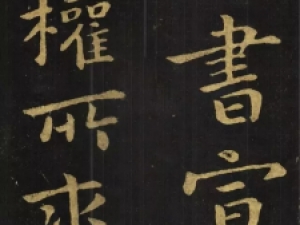 書宣
權所求